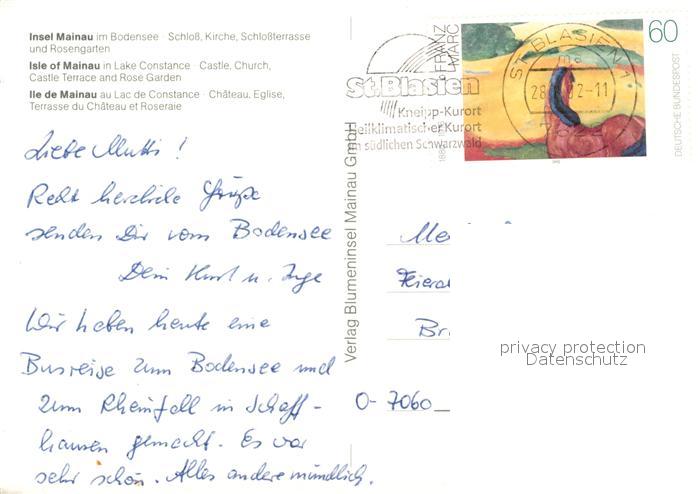 Insel Mainau im Bodensee · Schloß, Kirche, Schloßterrasse
und Rosengarten
Isle of Mainau in Lake Constance · Castle, Church,
Castle Terrace and Rose Garden
Ile de Mainau au Lac de Constance · Château, Eglise,
Terrasse du Château et Roseraie
Liebe Mutti!
Recht herzliche Grüße
senden Dir vom Bodensee
Dein Kurt u. Inge
Wir haben heute eine
Busreise zum Bodensee und
zum Rheinfall in Schaff-
hausen gemacht. Es war
sehr schön. Alles andere mündlich.
Verlag Blumeninsel Mainau GmbH
FRANZ
MARC
60
DEUTSCHE BUNDESPOST
ST. BLASIEN 1
ma
-11
St. Blasien
Kneipp-Kurort
heilklimatischer Kurort
im südlichen Schwarzwald
Me
Feiera
Br
O-7060
privacy protection
Datenschutz